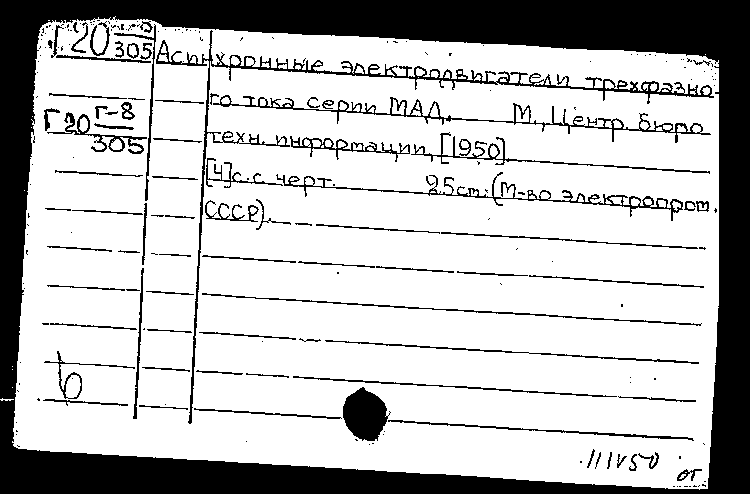 Г20 Г-8/305 Асинхронные электродвигатели трехфазно-
го тока серии МАД. М., Центр. бюро
Г20 Г-8/305 техн. информации, [1950].
[4]с. с черт. 25см. (М-во электропром.
СССР).
б